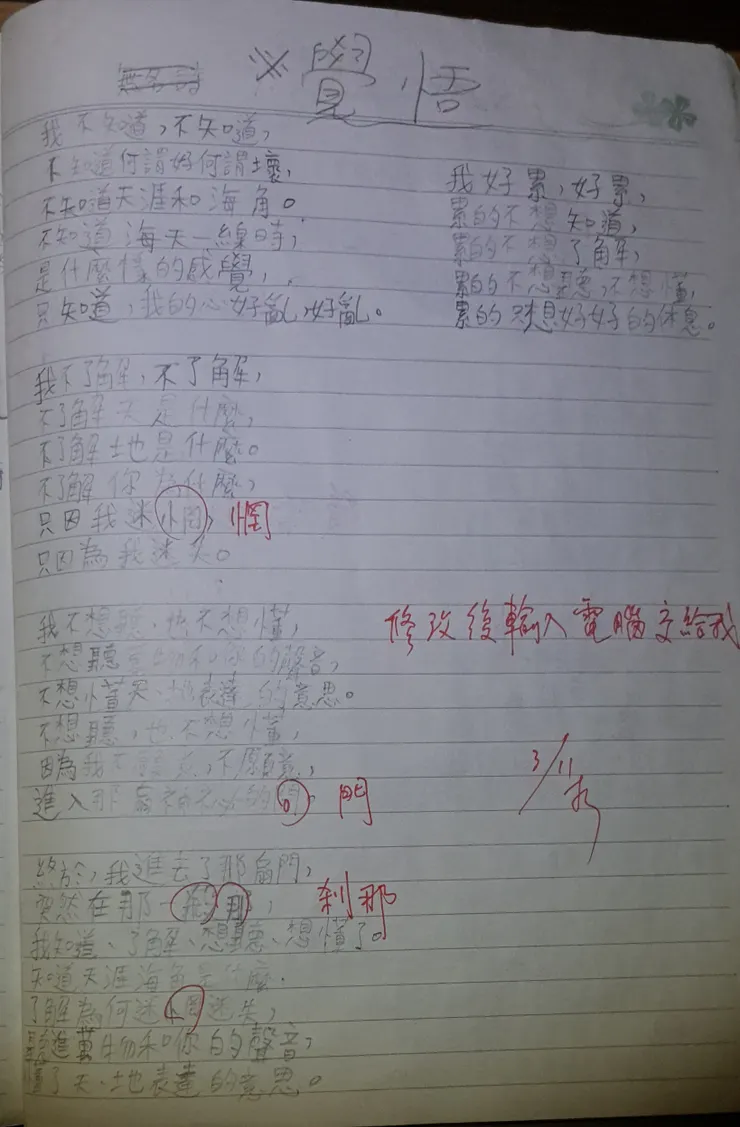 無名詩
※覺悟
我不知道，不知道，
不知道何謂好何謂壞，
不知道天涯和海角。
不知道海天一線時，
是什麼樣的感覺，
只知道，我的心好亂，好亂。
我不了解，不了解，
不了解天是什麼，
不了解地是什麼。
不了解你為什麼，
只因我迷惘， 惘
只因為我迷失。
我不想聽，也不想懂，
不想聽萬物和你的聲音，
不想懂天、地表達的意思。
不想聽，也不想懂，
因為我不願意，不願意，
進入那扇神祕的門， 門
終於，我進去了那扇門，
突然在那一剎那， 剎那
我知道、了解、想聽、想懂了。
知道天涯海角是什麼，
了解為何迷惘迷失，
聽進萬物和你的聲音，
懂了天、地表達的意思。
我好累，好累，
累的不想知道，
累的不想了解，
累的不想聽，不想懂，
累的只想好好的休息。
修改後輸入電腦交給我
3/11